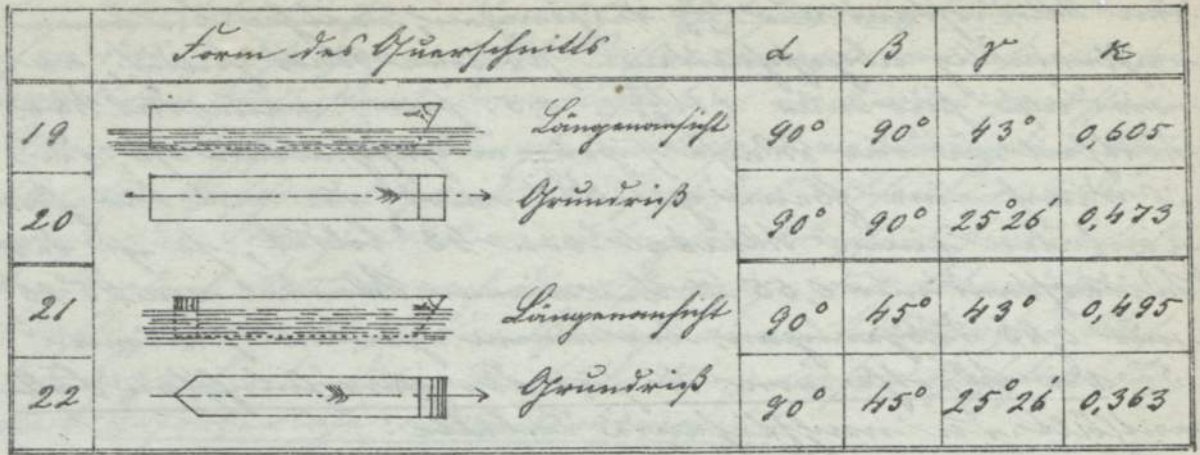 Form des Querschnitts α β γ K
19 Längenansicht 90° 90° 43° 0,605
20 Grundriß 90° 90° 25°26' 0,473
21 Längenansicht 90° 45° 43° 0,495
22 Grundriß 90° 45° 25°26' 0,363